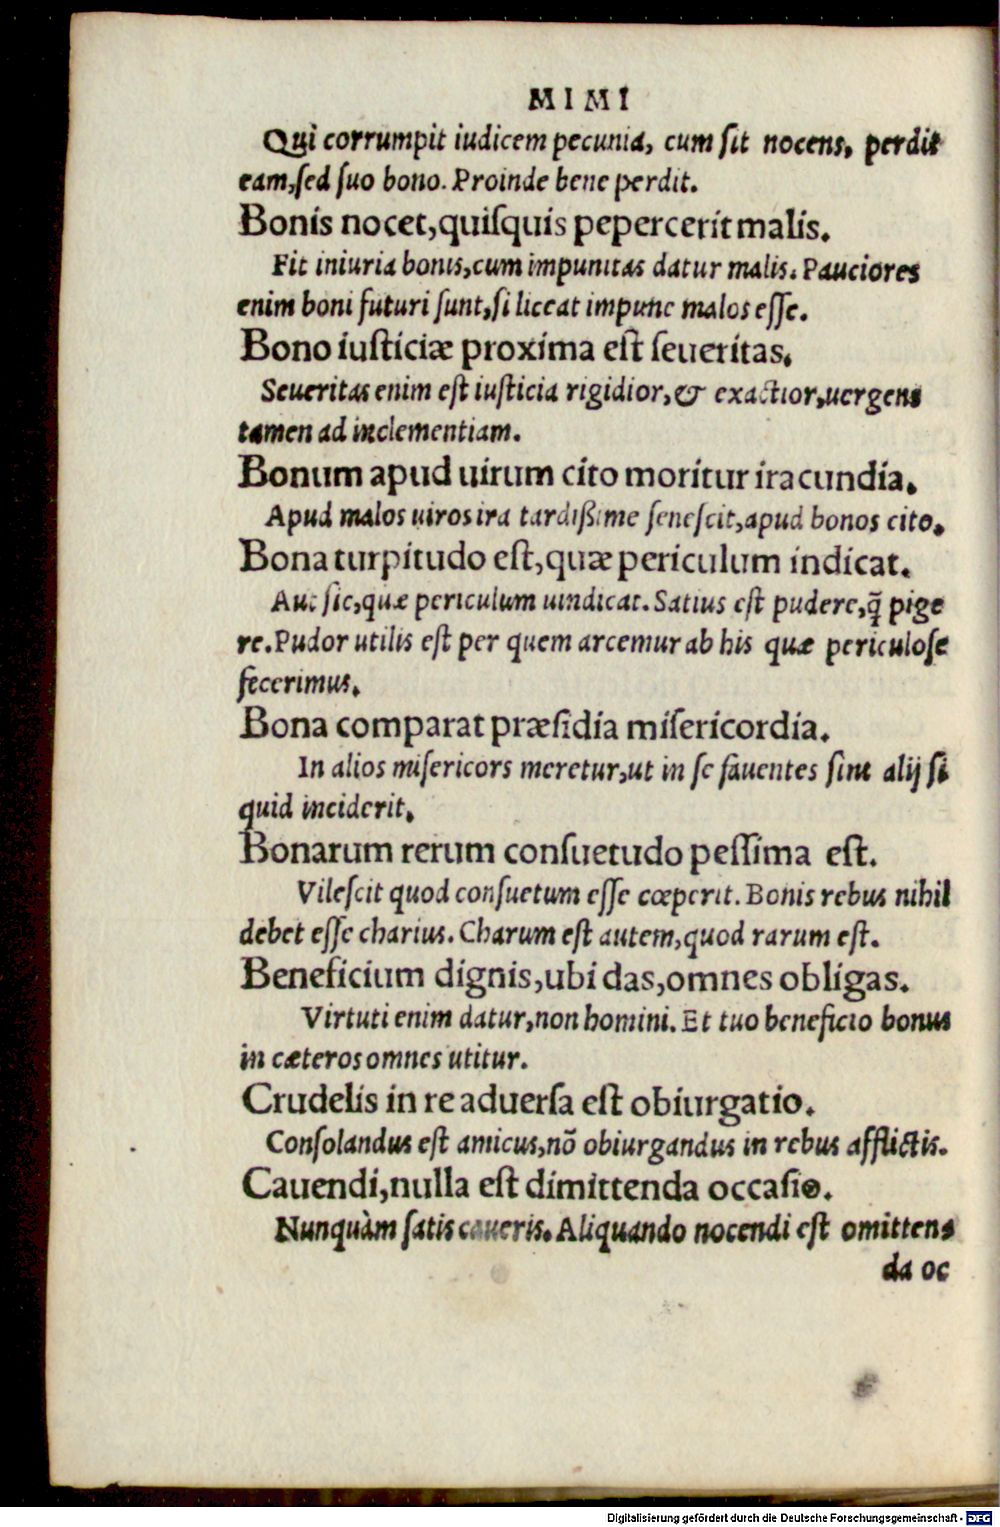 MIMI
Qui corrumpit iudicem pecunia, cum ſit nocens, perdit
eam,ſed ſuo bono. Proinde bene perdit.
Bonis nocet,quiſquis pepercerit malis.
Fit iniuria bonis,cum impunitas datur malis. Pauciores
enim boni futuri ſunt,ſi liceat impune malos eſſe.
Bono iuſticiæ proxima eſt ſeueritas.
Seueritas enim eſt iuſticia rigidior,& exactior,uergens
tamen ad inclementiam.
Bonum apud uirum cito moritur iracundia.
Apud malos uiros ira tardißime ſeneſcit,apud bonos cito.
Bona turpitudo eſt,quæ periculum indicat.
Aut ſic,quæ periculum uindicat. Satius eſt pudere,q̃ pige
re. Pudor utilis eſt per quem arcemur ab his quæ periculoſe
fecerimus.
Bona comparat præſidia miſericordia.
In alios miſericors meretur,ut in ſe fauentes ſint alij ſi
quid inciderit.
Bonarum rerum conſuetudo peſſima eſt.
Vileſcit quod conſuetum eſſe cœperit. Bonis rebus nihil
debet eſſe charius. Charum eſt autem,quod rarum eſt.
Beneficium dignis,ubi das,omnes obligas.
Virtuti enim datur,non homini. Et tuo beneficio bonus
in cæteros omnes utitur.
Crudelis in re aduerſa eſt obiurgatio.
Conſolandus eſt amicus,nõ obiurgandus in rebus afflictis.
Cauendi,nulla eſt dimittenda occaſio.
Nunquàm ſatis caueris. Aliquando nocendi eſt omittens
da oc
Digitalisierung gefördert durch die Deutsche Forschungsgemeinschaft - DFG